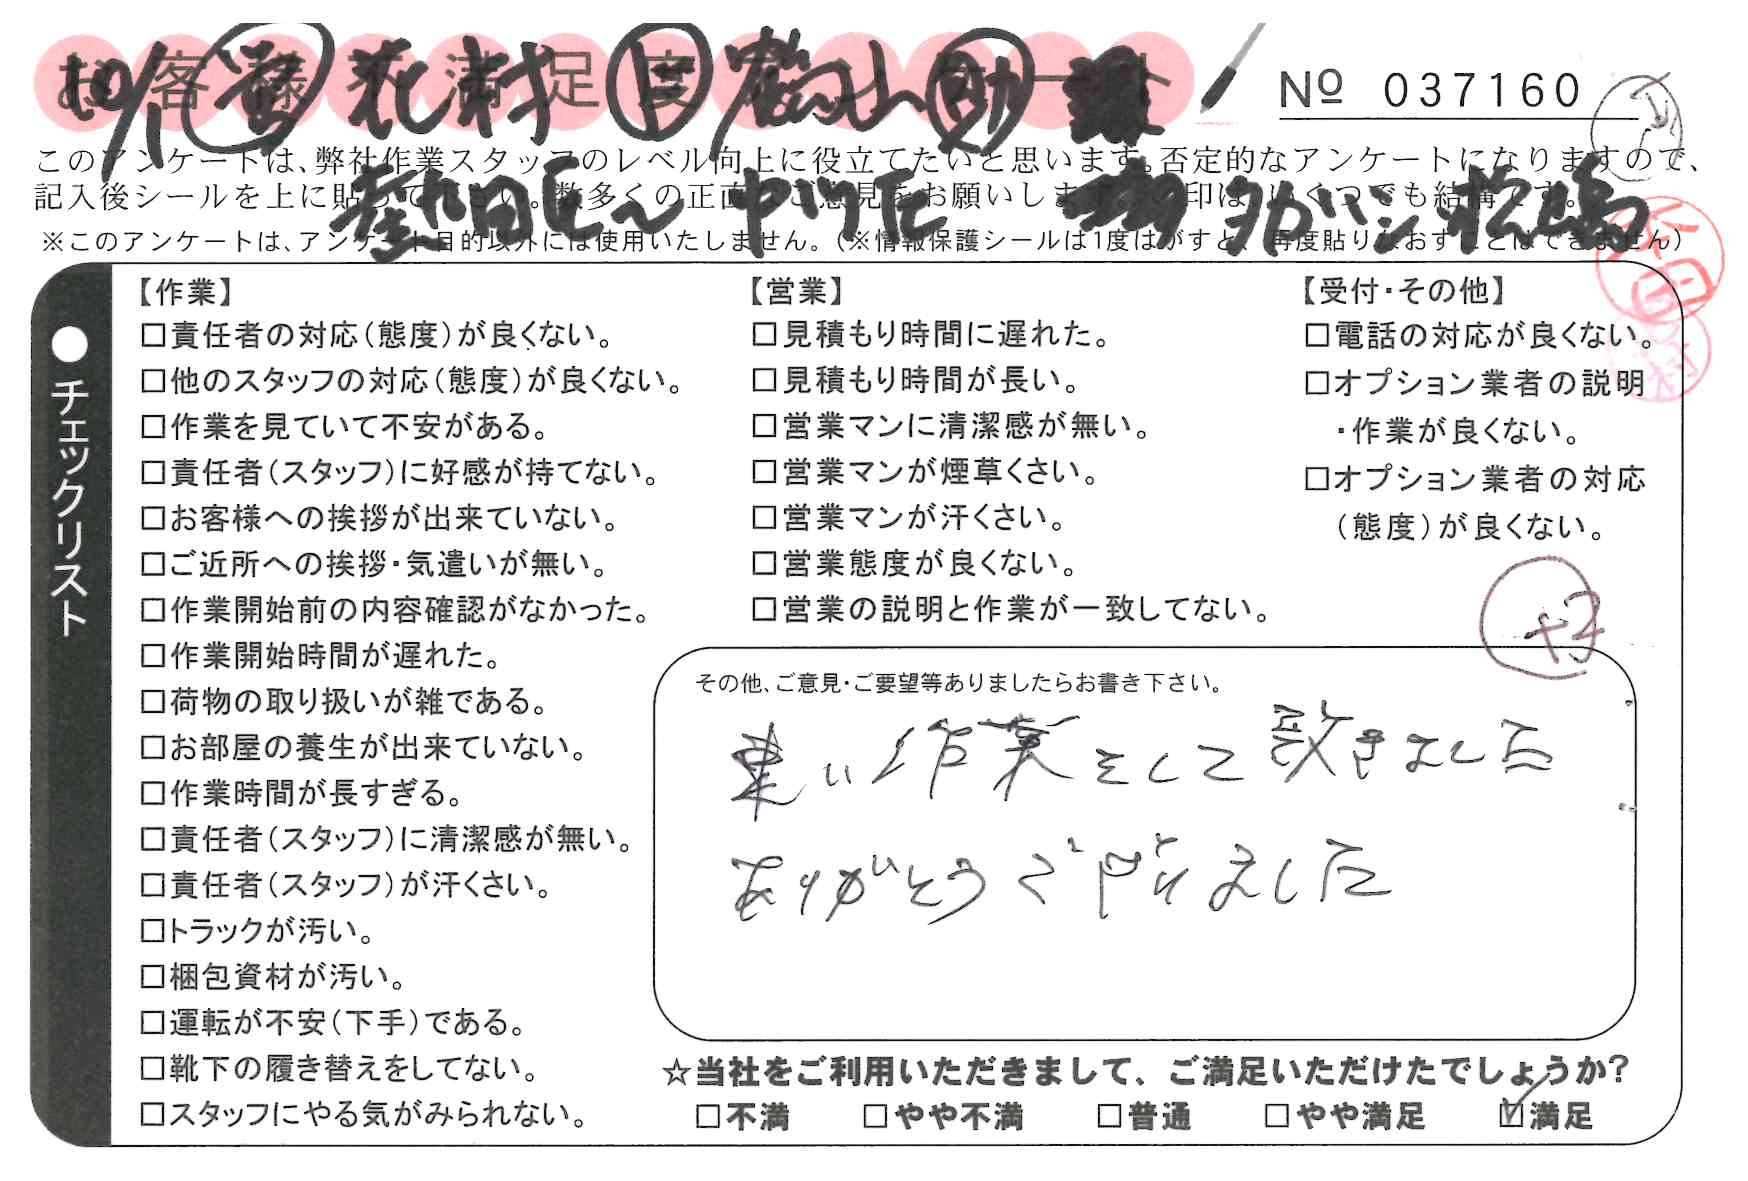 お客様不満足度アンケート
№ 037160
10/1 花村
このアンケートは、弊社作業スタッフのレベル向上に役立てたいと思います。否定的なアンケートになりますので、
記入後シールを上に貼って下さい。数多くの正直なご意見をお願いします。 印は、いくつでも結構です。
※このアンケートは、アンケート目的以外には使用いたしません。(※情報保護シールは1度はがすと、再度貼りなおすことはできません)
●チェックリスト
【作業】
□責任者の対応(態度)が良くない。
□他のスタッフの対応(態度)が良くない。
□作業を見ていて不安がある。
□責任者(スタッフ)に好感が持てない。
□お客様への挨拶が出来ていない。
□ご近所への挨拶・気遣いが無い。
□作業開始前の内容確認がなかった。
□作業開始時間が遅れた。
□荷物の取り扱いが雑である。
□お部屋の養生が出来ていない。
□作業時間が長すぎる。
□責任者(スタッフ)に清潔感が無い。
□責任者(スタッフ)が汗くさい。
□トラックが汚い。
□梱包資材が汚い。
□運転が不安(下手)である。
□靴下の履き替えをしてない。
□スタッフにやる気がみられない。
【営業】
□見積もり時間に遅れた。
□見積もり時間が長い。
□営業マンに清潔感が無い。
□営業マンが煙草くさい。
□営業マンが汗くさい。
□営業態度が良くない。
□営業の説明と作業が一致してない。
【受付・その他】
□電話の対応が良くない。
□オプション業者の説明
・作業が良くない。
□オプション業者の対応
(態度)が良くない。
その他、ご意見・ご要望等ありましたらお書き下さい。
車い作業をして頂きました
ありがとうございました
☆当社をご利用いただきまして、ご満足いただけたでしょうか?
□不満 □やや不満 □普通 □やや満足 ☑満足